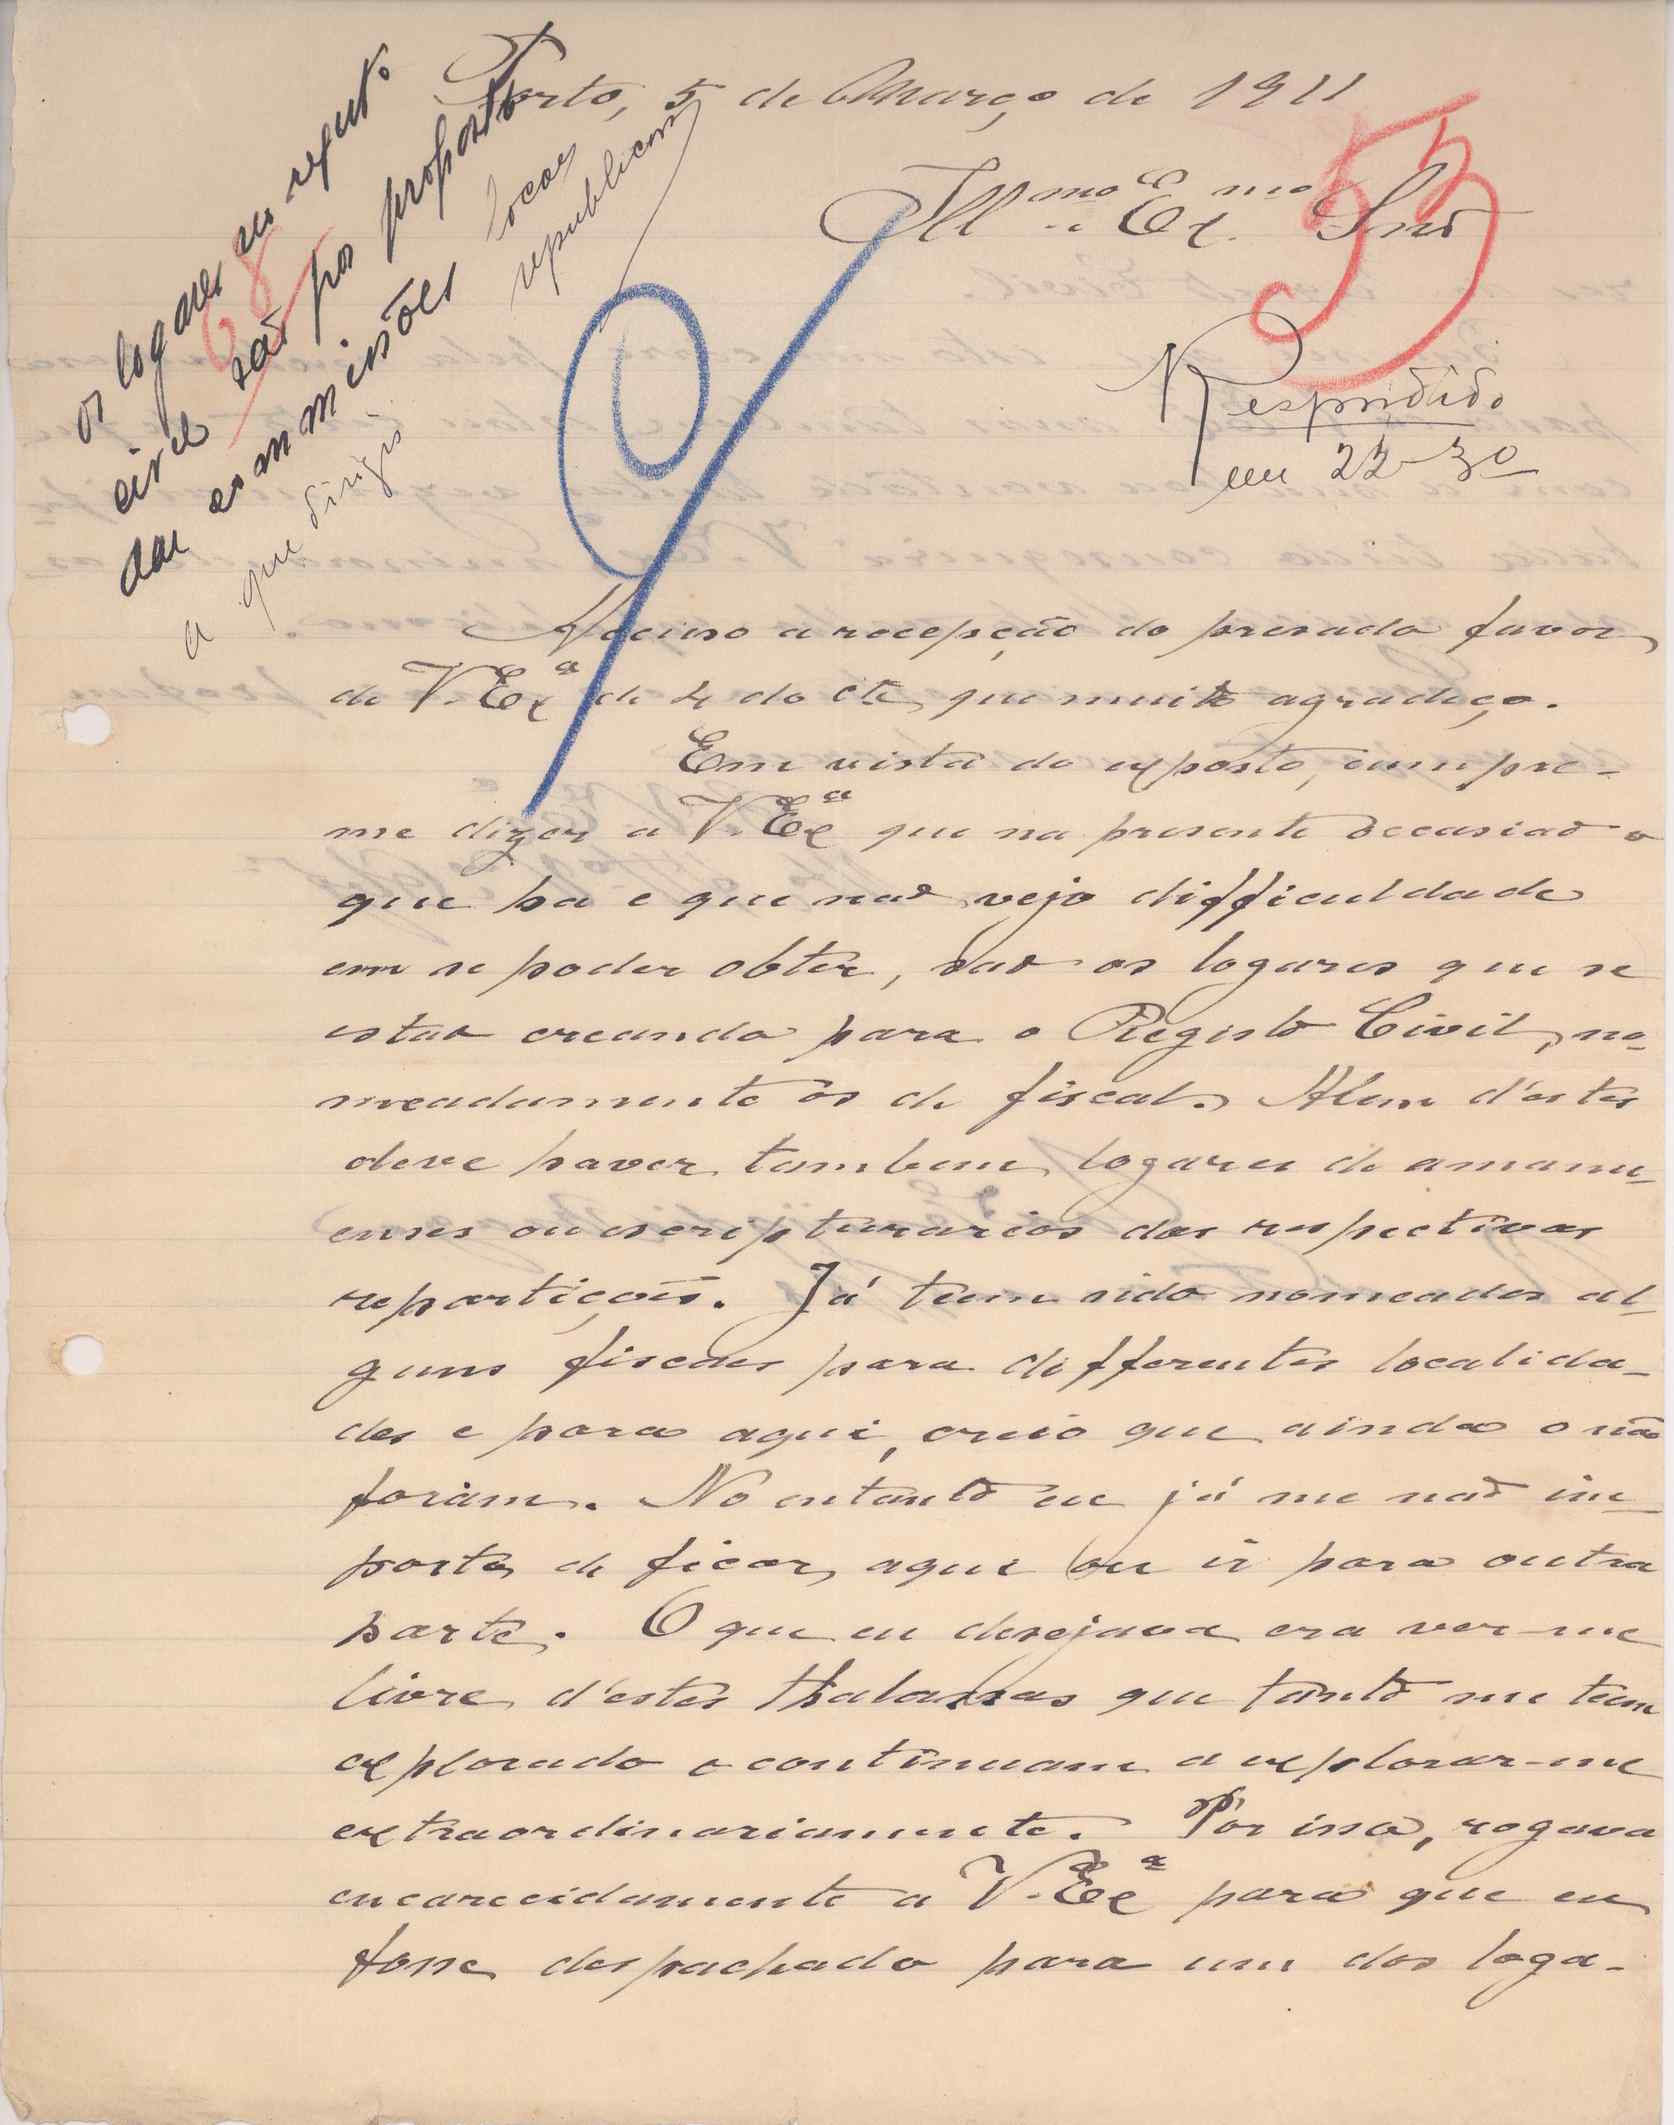 Porto, 5 de Março de 1911
Ill.mo e Ex.mo Snr
os logares no regist.o
civil são por proposta
das commissões locaes
republicanas
a que dirigir
68
55
9
Respondido
em 22-3º
Accuso a recepção do presado favor
de V. Exª de 4 do cte, que muito agradeço.
Em vista do exposto, cumpre-
me dizer a V. Exª que na presente occasião o
que ha e que não vejo difficuldade
em se poder obter, são os logares que se
estão creando para o Registo Civil, no-
meadamente os de fiscal. Alem d'estes
deve haver tambem logares de amanu-
enses ou escripturarios das respectivas
repartições. Já teem sido nomeados al-
guns fiscaes para differentes localida-
des e para aqui, creio que ainda o não
foram. No entanto eu já me não im-
porta de ficar aqui ou ir para outra
parte. O que eu desejava era ver-me
livre d'estes thalassas que tanto me teem
explorado e continuam a explorar-me
extraordinariamente. Por isso, rogava
encarecidamente a V. Exª para que eu
fosse despachado para um dos loga-